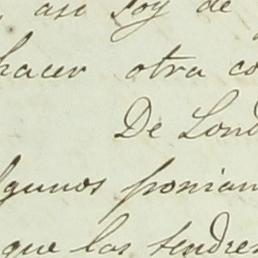 , asi soy de
hacer otra co
De Lond
lgunos ponian
que las tendre